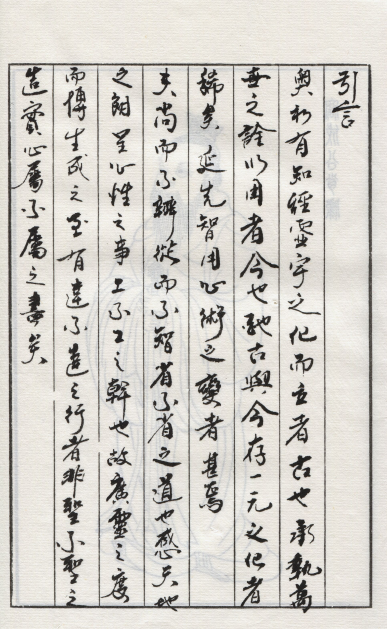 引言
與初有知經靈宇之化而立者古也承執萬
世之詮以用者今也融古與今存一元之化者
稀矣延先智用心術之變者甚焉
夫尚而不辯從而不智省不省之道也感天地
之朗呈心性之事工不工之幹也故廣靈之度
而博生成之至有達不造之行者非聖不聖之
造實心屬不屬之書矣